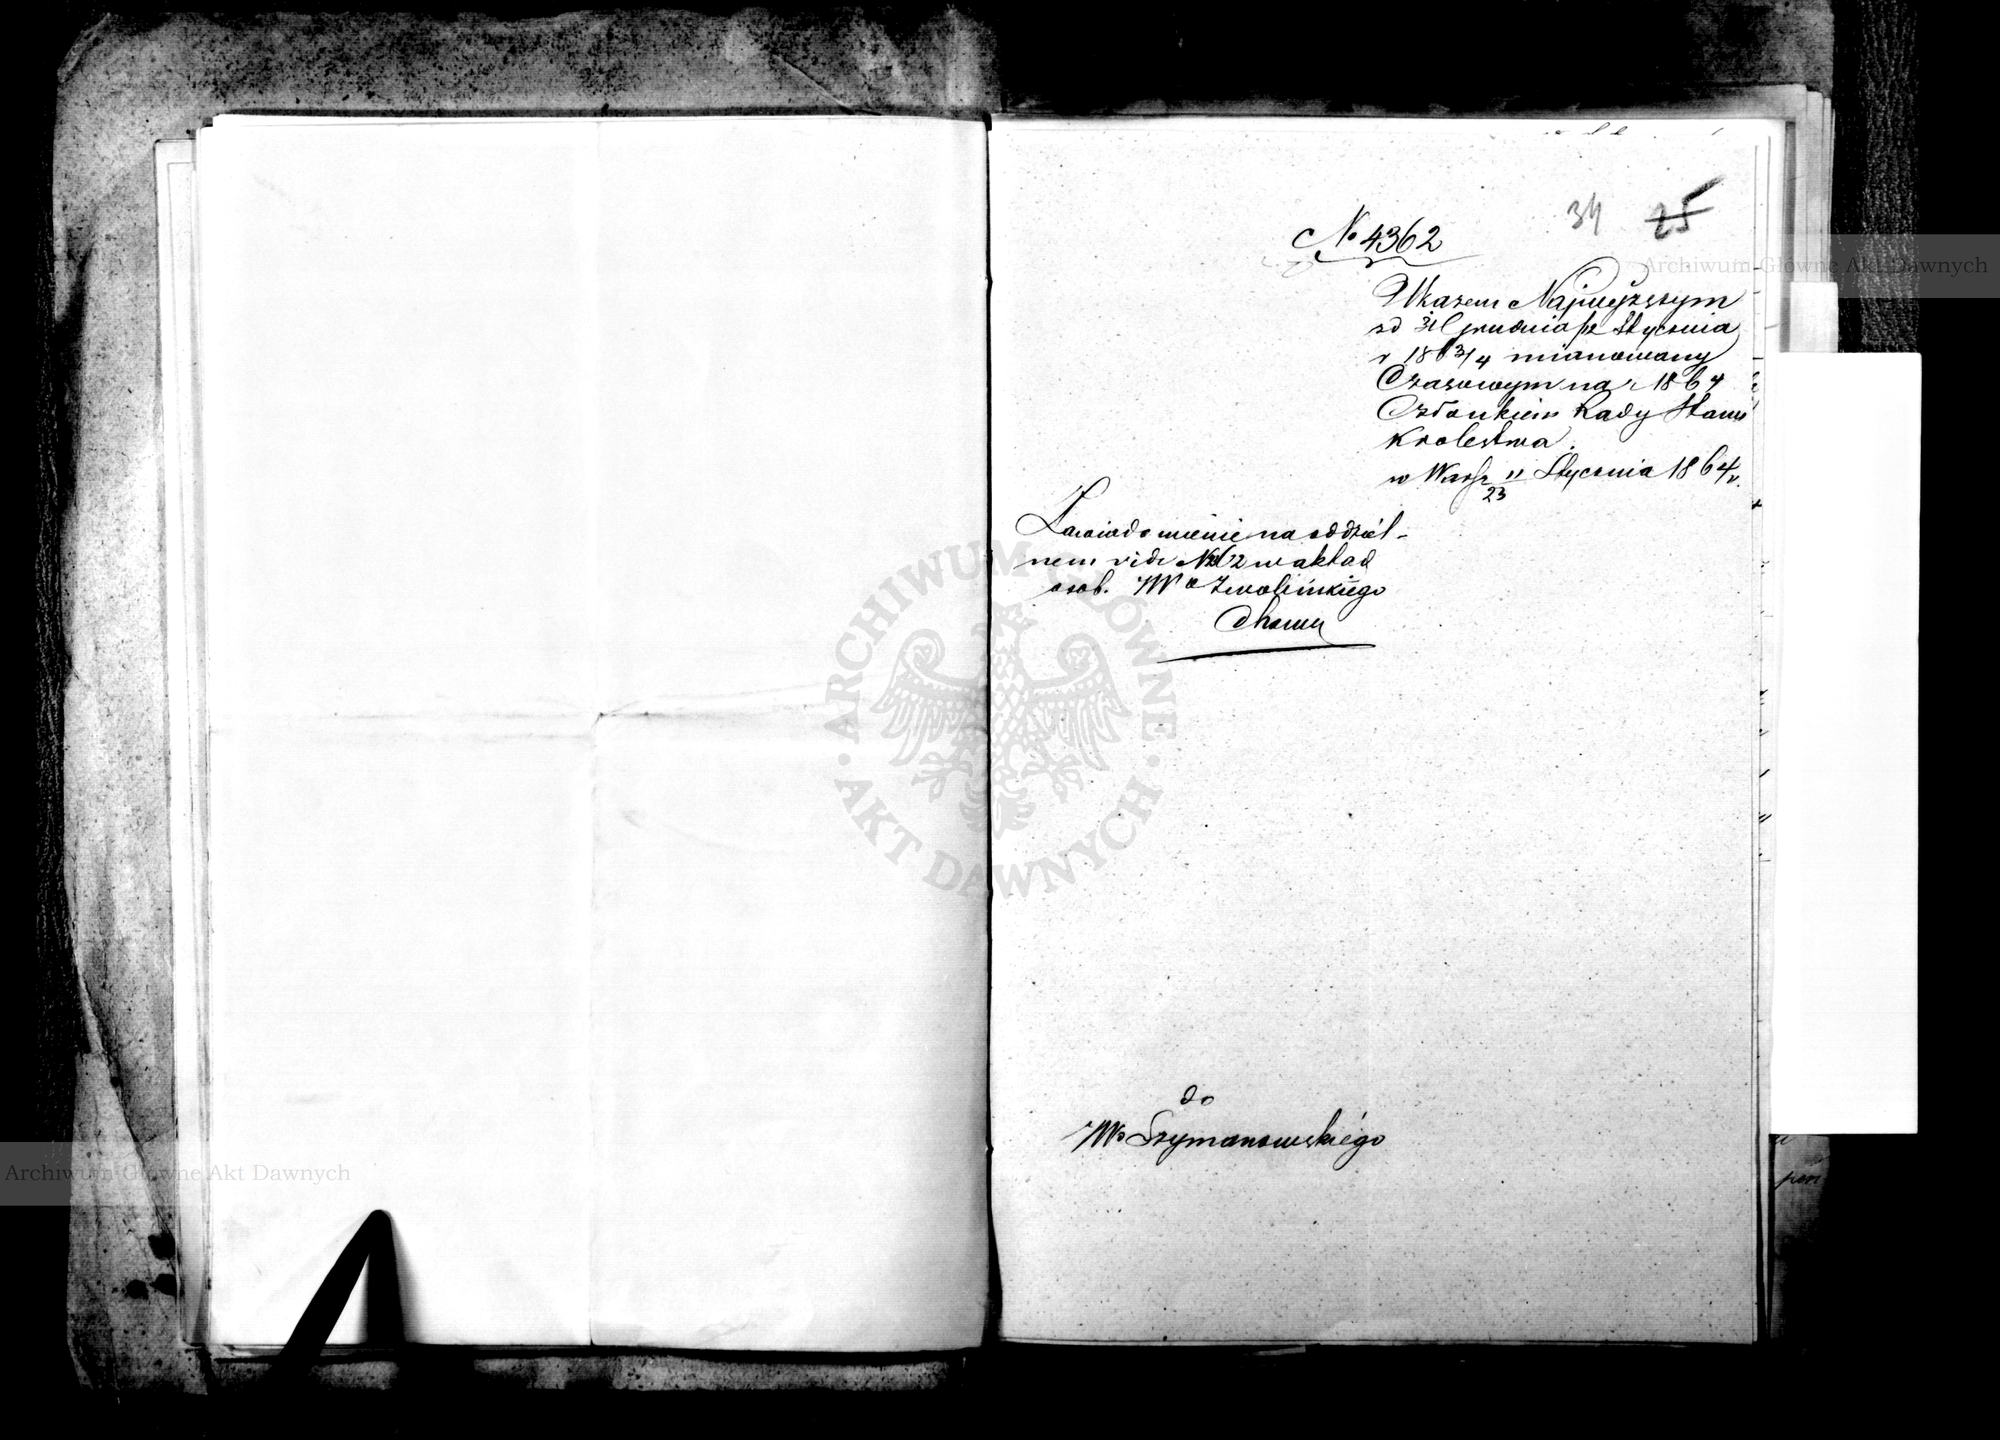 34 25
No 4362
Ukazem Najwyższym
od 31 grudnia /12 Stycznia
r 1863/4 mianowany
Czasowym na r. 1864
Członkiem Rady Stanu
Królestwa.
w Warsz 11/23 Stycznia 1864 r.
Zawiadomienie na oddziel-
nem vide w aktach
osob. Wo Zwolińskiego
do
Wo Szymanowskiego
Archiwum Główne Akt Dawnych
ARCHIWUM GŁÓWNE · AKT DAWNYCH ·
Archiwum Główne Akt Dawnych